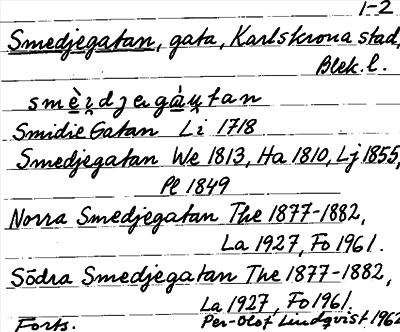 1-2
Smedjegatan, gata, Karlskrona stad,
Blek. l.
smèi̯djegàu̯tan
Smidie Gatan Li 1718
Smedjegatan We 1813, Ha 1810, Lj 1855,
Pl 1849
Norra Smedjegatan The 1877-1882,
La 1927, Fo 1961.
Södra Smedjegatan The 1877-1882,
La 1927, Fo 1961.
Forts. Per-Olof Lindqvist 1962